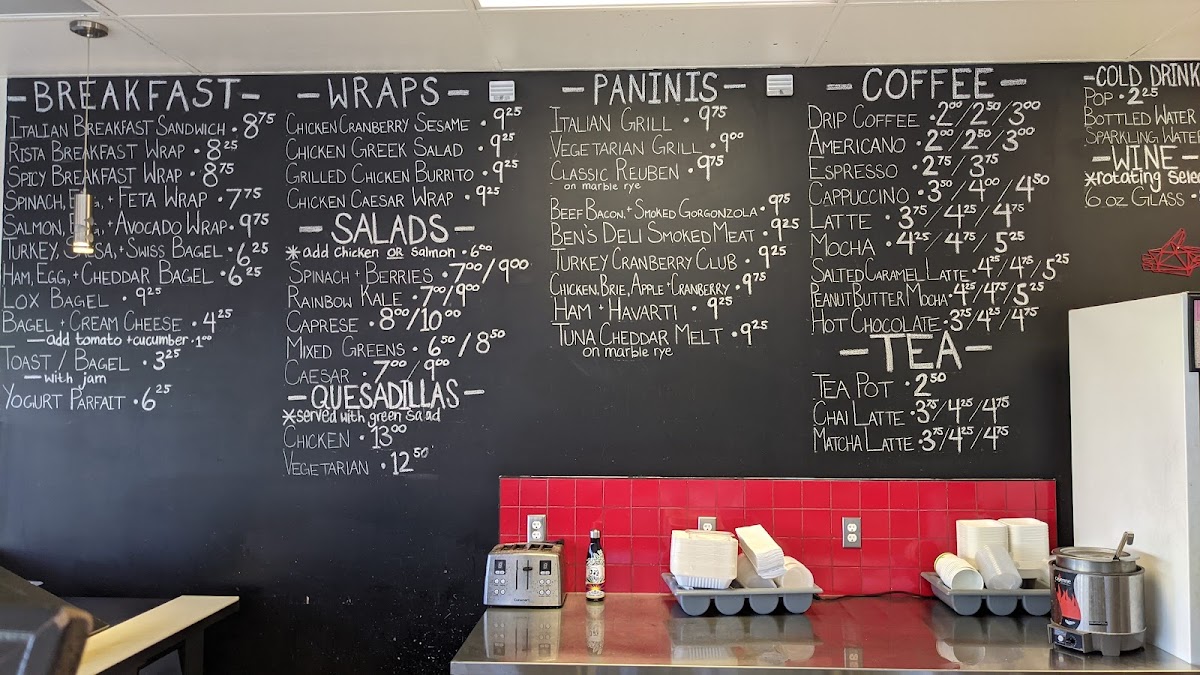 -BREAKFAST-
ITALIAN BREAKFAST SANDWICH • 8 75
RISTA BREAKFAST WRAP • 8 25
SPICY BREAKFAST WRAP • 8 75
SPINACH, + FETA WRAP • 7 75
SALMON, + AVOCADO WRAP • 9 75
TURKEY, + SWISS BAGEL • 6 25
HAM, EGG, + CHEDDAR BAGEL • 6 25
LOX BAGEL • 9 25
BAGEL + CREAM CHEESE • 4 25
—add tomato + cucumber • 1 00
TOAST / BAGEL • 3 25
—with jam
YOGURT PARFAIT • 6 25
-WRAPS-
CHICKEN CRANBERRY SESAME • 9 25
CHICKEN GREEK SALAD • 9 25
GRILLED CHICKEN BURRITO • 9 25
CHICKEN CAESAR WRAP • 9 25
-SALADS-
*add Chicken OR Salmon • 6 00
SPINACH + BERRIES • 7 00 / 9 00
RAINBOW KALE • 7 00 / 9 00
CAPRESE • 8 00 / 10 00
MIXED GREENS • 6 50 / 8 50
CAESAR • 7 00 / 9 00
-QUESADILLAS-
*served with green salad
CHICKEN • 13 00
VEGETARIAN • 12 50
-PANINIS-
ITALIAN GRILL • 9 75
VEGETARIAN GRILL • 9 00
CLASSIC REUBEN • 9 75
on marble rye
BEEF BACON, + SMOKED GORGONZOLA • 9 75
BEN'S DELI SMOKED MEAT • 9 25
TURKEY CRANBERRY CLUB • 9 25
CHICKEN, BRIE, APPLE + CRANBERRY • 9 75
HAM + HAVARTI • 9 25
TUNA CHEDDAR MELT • 9 25
on marble rye
-COFFEE-
DRIP COFFEE • 2 00 / 2 50 / 3 00
AMERICANO • 2 00 / 2 50 / 3 00
ESPRESSO • 2 75 / 3 75
CAPPUCCINO • 3 50 / 4 00 / 4 50
LATTE • 3 75 / 4 25 / 4 75
MOCHA • 4 25 / 4 75 / 5 25
SALTED CARAMEL LATTE • 4 25 / 4 75 / 5 25
PEANUT BUTTER MOCHA • 4 25 / 4 75 / 5 25
HOT CHOCOLATE • 3 75 / 4 25 / 4 75
-TEA-
TEA POT • 2 50
CHAI LATTE • 3 75 / 4 25 / 4 75
MATCHA LATTE • 3 75 / 4 25 / 4 75
-COLD DRINK
POP • 2 25
BOTTLED WATER
SPARKLING WATER
-WINE-
*rotating Selec
6 OZ GLASS •